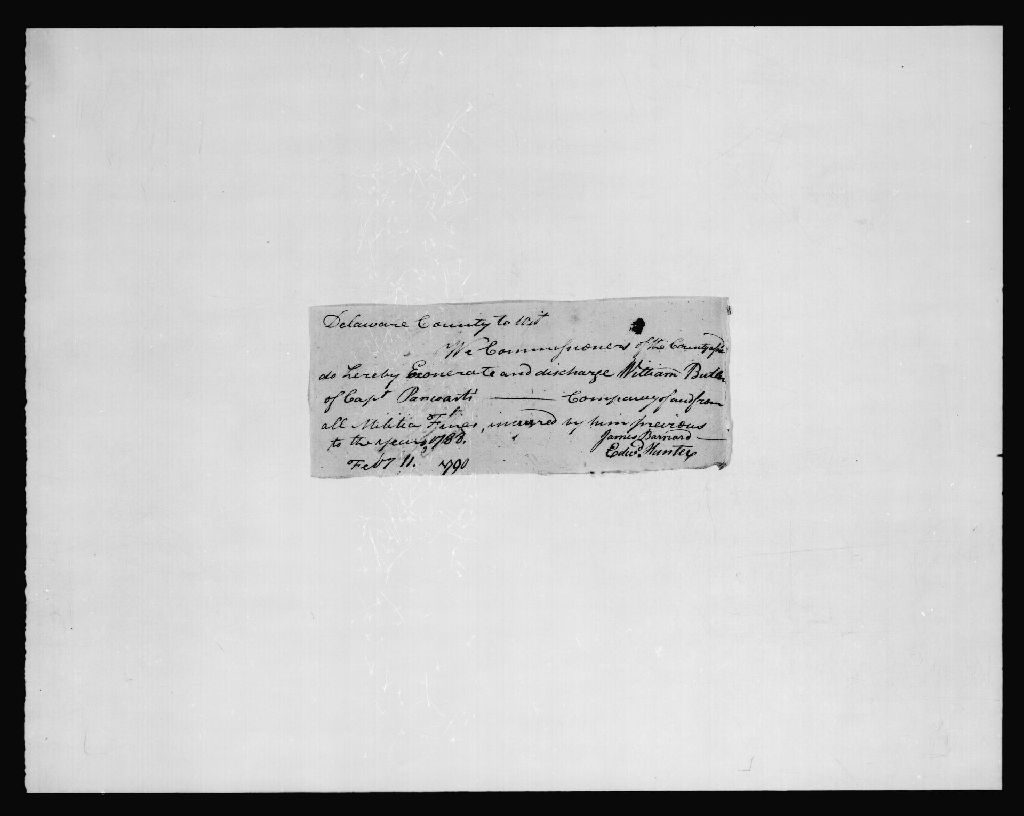 Delaware County to Wit
We Commissioners of the County afsd
do hereby Exonerate and discharge William Butler
of Capt Panwarts Company of and from
all Militia Fines, incurred by him previous
to the year 1788.
James Barnard
Edwd. Hunter
Feby 11. 1790